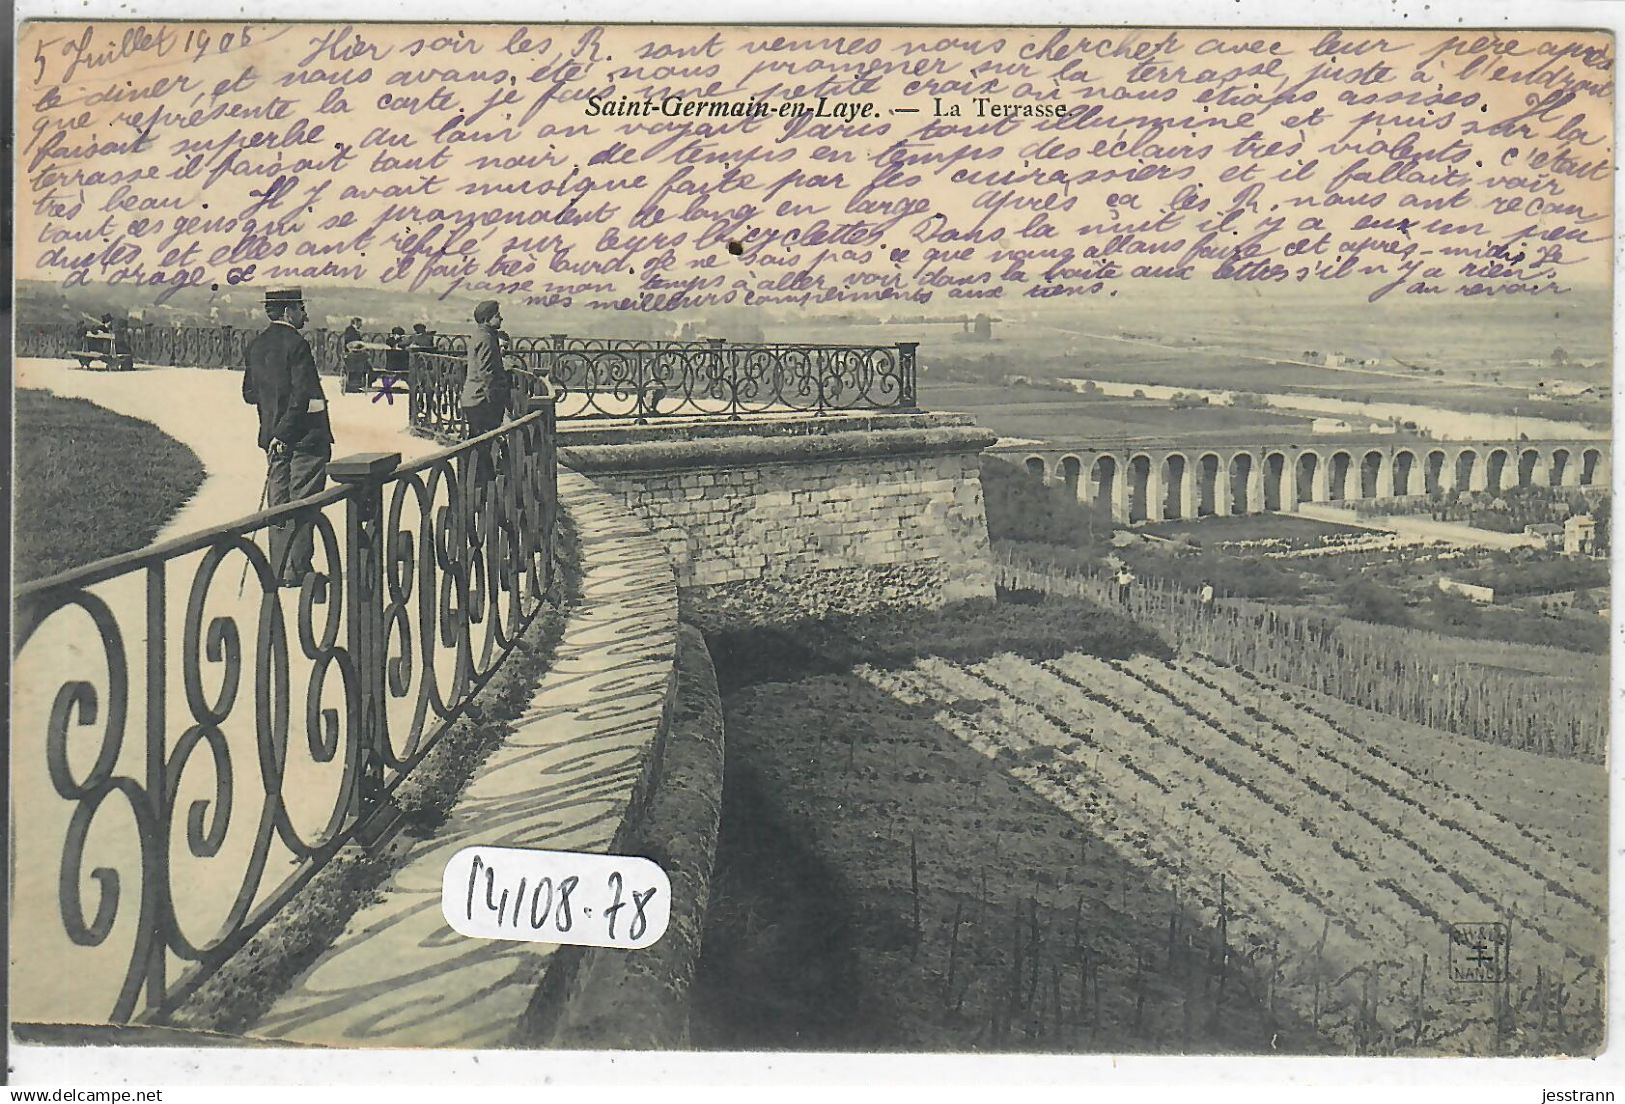 5 Juillet 1905 Hier soir les R. sont venues nous chercher avec leur père après
le diner, et nous avons été nous promener sur la terrasse, juste à l'endroit
que représente la carte. je fais une petite croix où nous étions assises. Il
Saint-Germain-en-Laye. — La Terrasse.
faisait superbe. au loin on voyait Paris tout illuminé et puis sur la
terrasse il faisait tout noir. de temps en temps des éclairs très violents. c'était
très beau. Il y avait musique faite par les cuirassiers et il fallait voir
tout ces gens qui se promenaient de long en large. Après ça les R. nous ont recon
duites et elles ont refilé sur leurs bicyclettes. Dans la nuit il y a eu un peu
d'orage. ce matin il fait très lourd. Je ne sais pas ce que nous allons faire cet après-midi. Je
passe mon temps à aller voir dans la boite aux lettres s'il n'y a rien.
mes meilleurs compliments aux tiens. au revoir
14108-78
H & Cie
NANCY
jesstrann